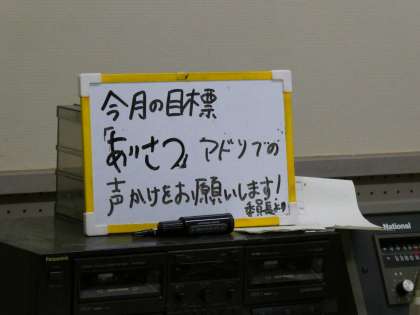 今月の目標
「あいさつ」アドリブの
声かけをお願いします!
委員長より
National
Panasonic